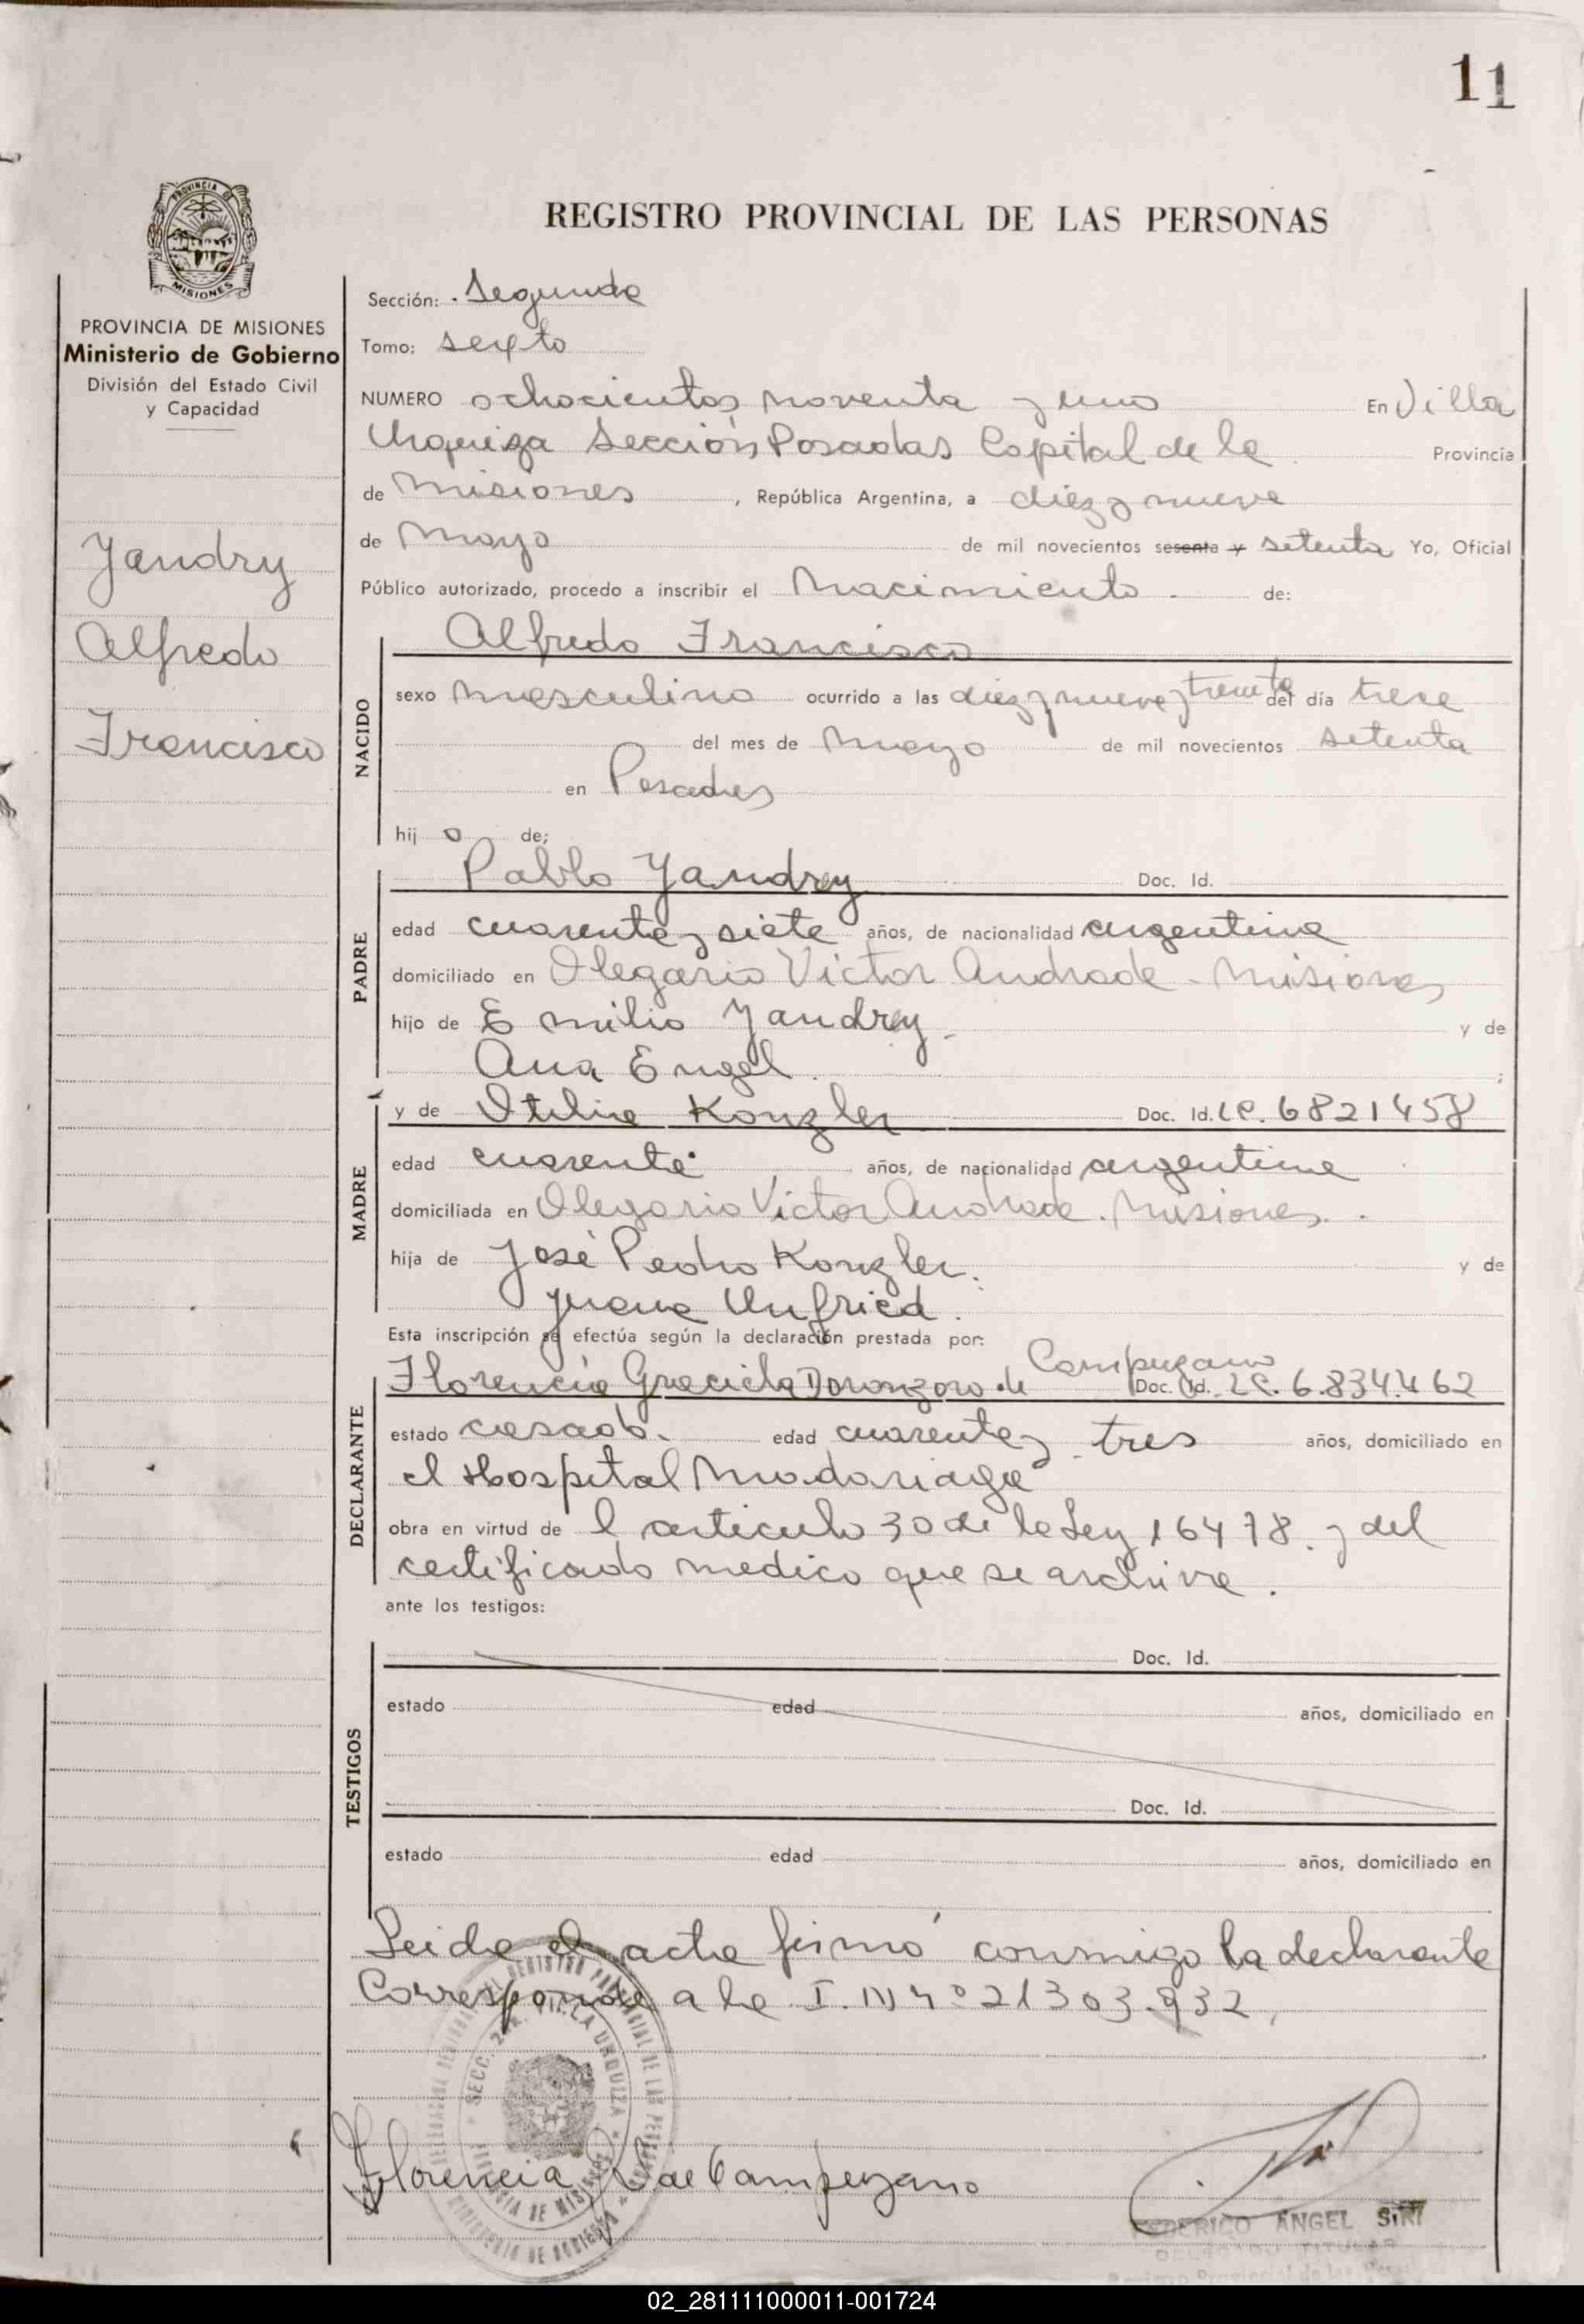 11
REGISTRO PROVINCIAL DE LAS PERSONAS
PROVINCIA DE MISIONES
Ministerio de Gobierno
División del Estado Civil
y Capacidad
Yandry
Alfredo
Francisco
Sección: Segunda
Tomo: sexto
NUMERO ochocientos noventa y uno En Villa
Urquiza Sección Posadas Capital de la Provincia
de Misiones, República Argentina, a diez y nueve
de Mayo de mil novecientos sesenta y setenta Yo, Oficial
Público autorizado, procedo a inscribir el Nacimiento de:
NACIDO
Alfredo Francisco
sexo masculino ocurrido a las diez y nueve y treinta del día trece
del mes de Mayo de mil novecientos setenta
en Posadas
hijo de;
PADRE
Pablo Yandry Doc. Id.
edad cuarenta y siete años, de nacionalidad argentina
domiciliado en Olegario Victor Andrade - Misiones
hijo de Emilio Yandry y de
Ana Engel
MADRE
y de Otilia Konzler Doc. Id. LC. 6821458
edad cuarenta años, de nacionalidad argentina
domiciliada en Olegario Victor Andrade. Misiones.
hija de José Pedro Konzler. y de
Juana Unfried.
Esta inscripción se efectúa según la declaración prestada por:
DECLARANTE
Florencia Graciela Doronzoro de Campuzano Doc. Id. LC. 6.834.462
estado casado. edad cuarenta y tres años, domiciliado en
el Hospital Madariaga
obra en virtud de l articulo 30 de la Ley 16478. y del
certificado medico que se archiva.
ante los testigos:
TESTIGOS
Doc. Id.
estado edad años, domiciliado en
Doc. Id.
estado edad años, domiciliado en
Leida el acta firmó conmigo la declarante
Corresponde a la I. Nº 21303.932,
SECC. 2a. VILLA URQUIZA
Florencia de Campuzano
FEDERICO ANGEL SIRI
DELEGADO TITULAR
Registro Provincial de las
02_281111000011-001724